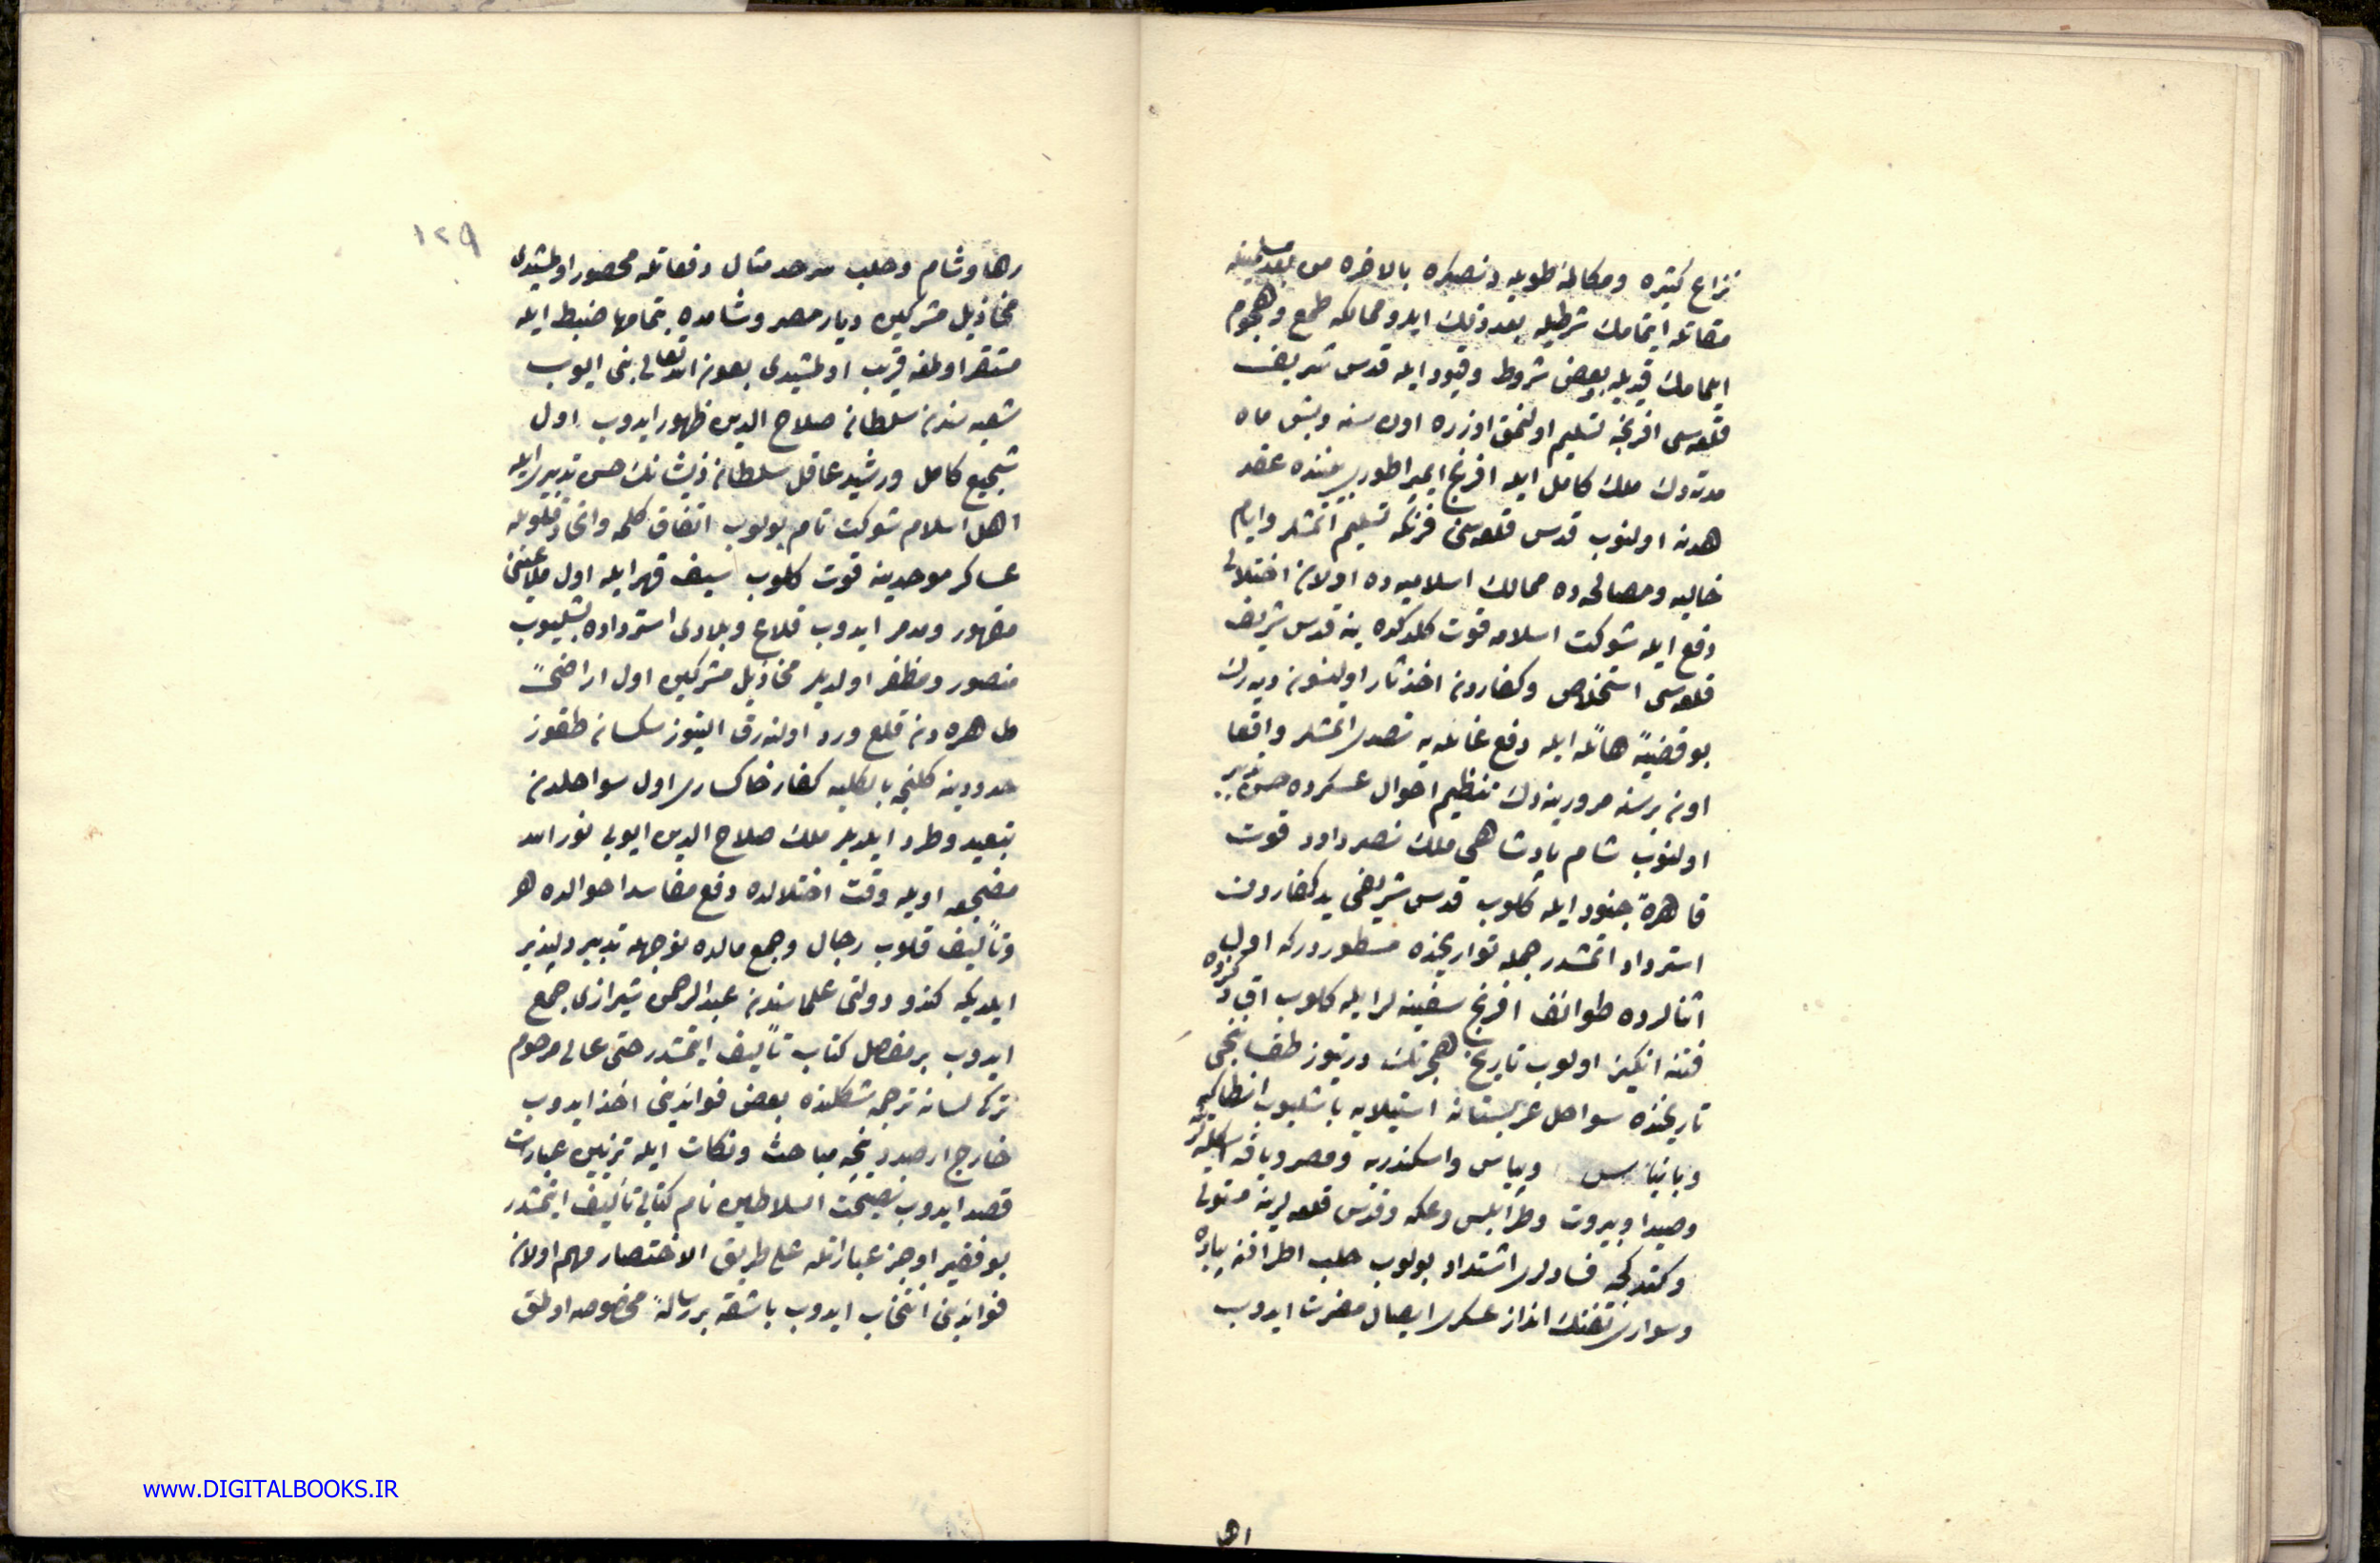 نزاع كثيره ومكالمۀ طويله دنصكره بالاخره من بعد مسلمينله
مقاتله ايتمامك شرطيله بعد ذلك ايدو ممالكه طمع وهجوم
ايلمامك قيديله بعض شروط وقيود ايله قدس شريف
قلعه‌سى افرنجه تسليم اولنمق اوزره اون سنه وبش ماه
مدتدك ملك كامل ايله افرنج ايمپراطورى بيننده عقد
هدنه اولنوب قدس قلعه‌سنى فرنكه تسليم اتمشلر وايام
خاليه ومصالحه‌ده ممالك اسلاميه‌ده اولان اختلالى
دفع ايله شوكت اسلامه قوت كلدكده ينه قدس شريف
قلعه‌سى استخلاص وكفاردن اخذ ثار اولنسون ديه‌رك
بو قضيۀ هائله ايله دفع غائله‌يه تصدى اتمشلر واقعا
اون بر سنه مرورينه‌دك تنظيم احوال عسكرده حسن تدبير
اولنوب شام پادشاهى ملك نصر داود قوت
قاهرۀ جنود ايله كلوب قدس شريفى يد كفاردن
استرداد اتمشدر جمله تواريخده مسطوردركه اول
اثنالرده طوائف افرنج سفينه‌لر ايله كلوب اق دكزده
فتنه انكيز اولوب تاريخ هجرتك درتيوز طقسانجى
تاريخنده سواحل عربستانه استيلايه باشليوب انطاكيه
وبانياس وبياس واسكندريه ومصر ويافه اسكله‌لرينه
وصيدا وبيروت وطرابلس وعكه وقدس قلعه‌لرينه مستولى
وكتدكجه فسادلرى اشتداد بولوب حلب اطرافنه پياده
وسوارى تفنك انداز عسكرى ايصال مضرت ايدوب
اهل
١٢٩
رها وشام وحلب سرحد مثال دفعاتله محصور اولمشيدى
مخاذيل مشركين ديار مصر وشامده بتمامها ضبط ايله
مستقر اولمغه قريب اولمشيدى بعون الله تعالى بنى ايوب
شعبه‌سندن سلطان صلاح الدين ظهور ايدوب اول
شجيع كامل ورشيد عاقل سلطان ذيشانك حسن تدبيرى ايله
اهل اسلام شوكت تام بولوب اتفاق كلمه واتحاد قلوبله
عساكر موحدينه قوت كلوب سيف قهر ايله اول ملاعينى
مقهور ومدمر ايدوب قلاع وبلادى استرداده بشليوب
منصور ومظفر اولديلر مخاذيل مشركين اول اراضئ
طاهره‌دن قلع ورد اولنه‌رق التيوز سكسان طقوز
حدودينه كلنجه بالكليه كفار خاكسارى اول سواحلدن
تبعيد وطرد ايلديلر ملك صلاح الدين ايوبى نور الله
مضجعه اويله وقت اختلالده دفع مفاسد احوالده هر
وتأليف قلوب رجال وجمع مالده نوجهله تدبير دلپذير
ايلديكن كندو دولتى علماسندن عبد الرحمن شيرازى جمع
ايدوب بر مفصل كتاب تأليف ايتمشدر حتى عالى مرحوم
تركى لسانه ترجمه شكلنده بعض فوائدينى اخذ ايدوب
خارج از صدد نيجه مباحث ونكات ايله تزيين عبارت
قصد ايدوب نصيحت السلاطين نام كتابى تأليف ايتمشدر
بو فقير اوجز عباراتله على طريق الاختصار مهم اولان
فوائدينى انتخاب ايدوب باشقه بر رسالۀ مخصوصه اولمق
www.DIGITALBOOKS.IR